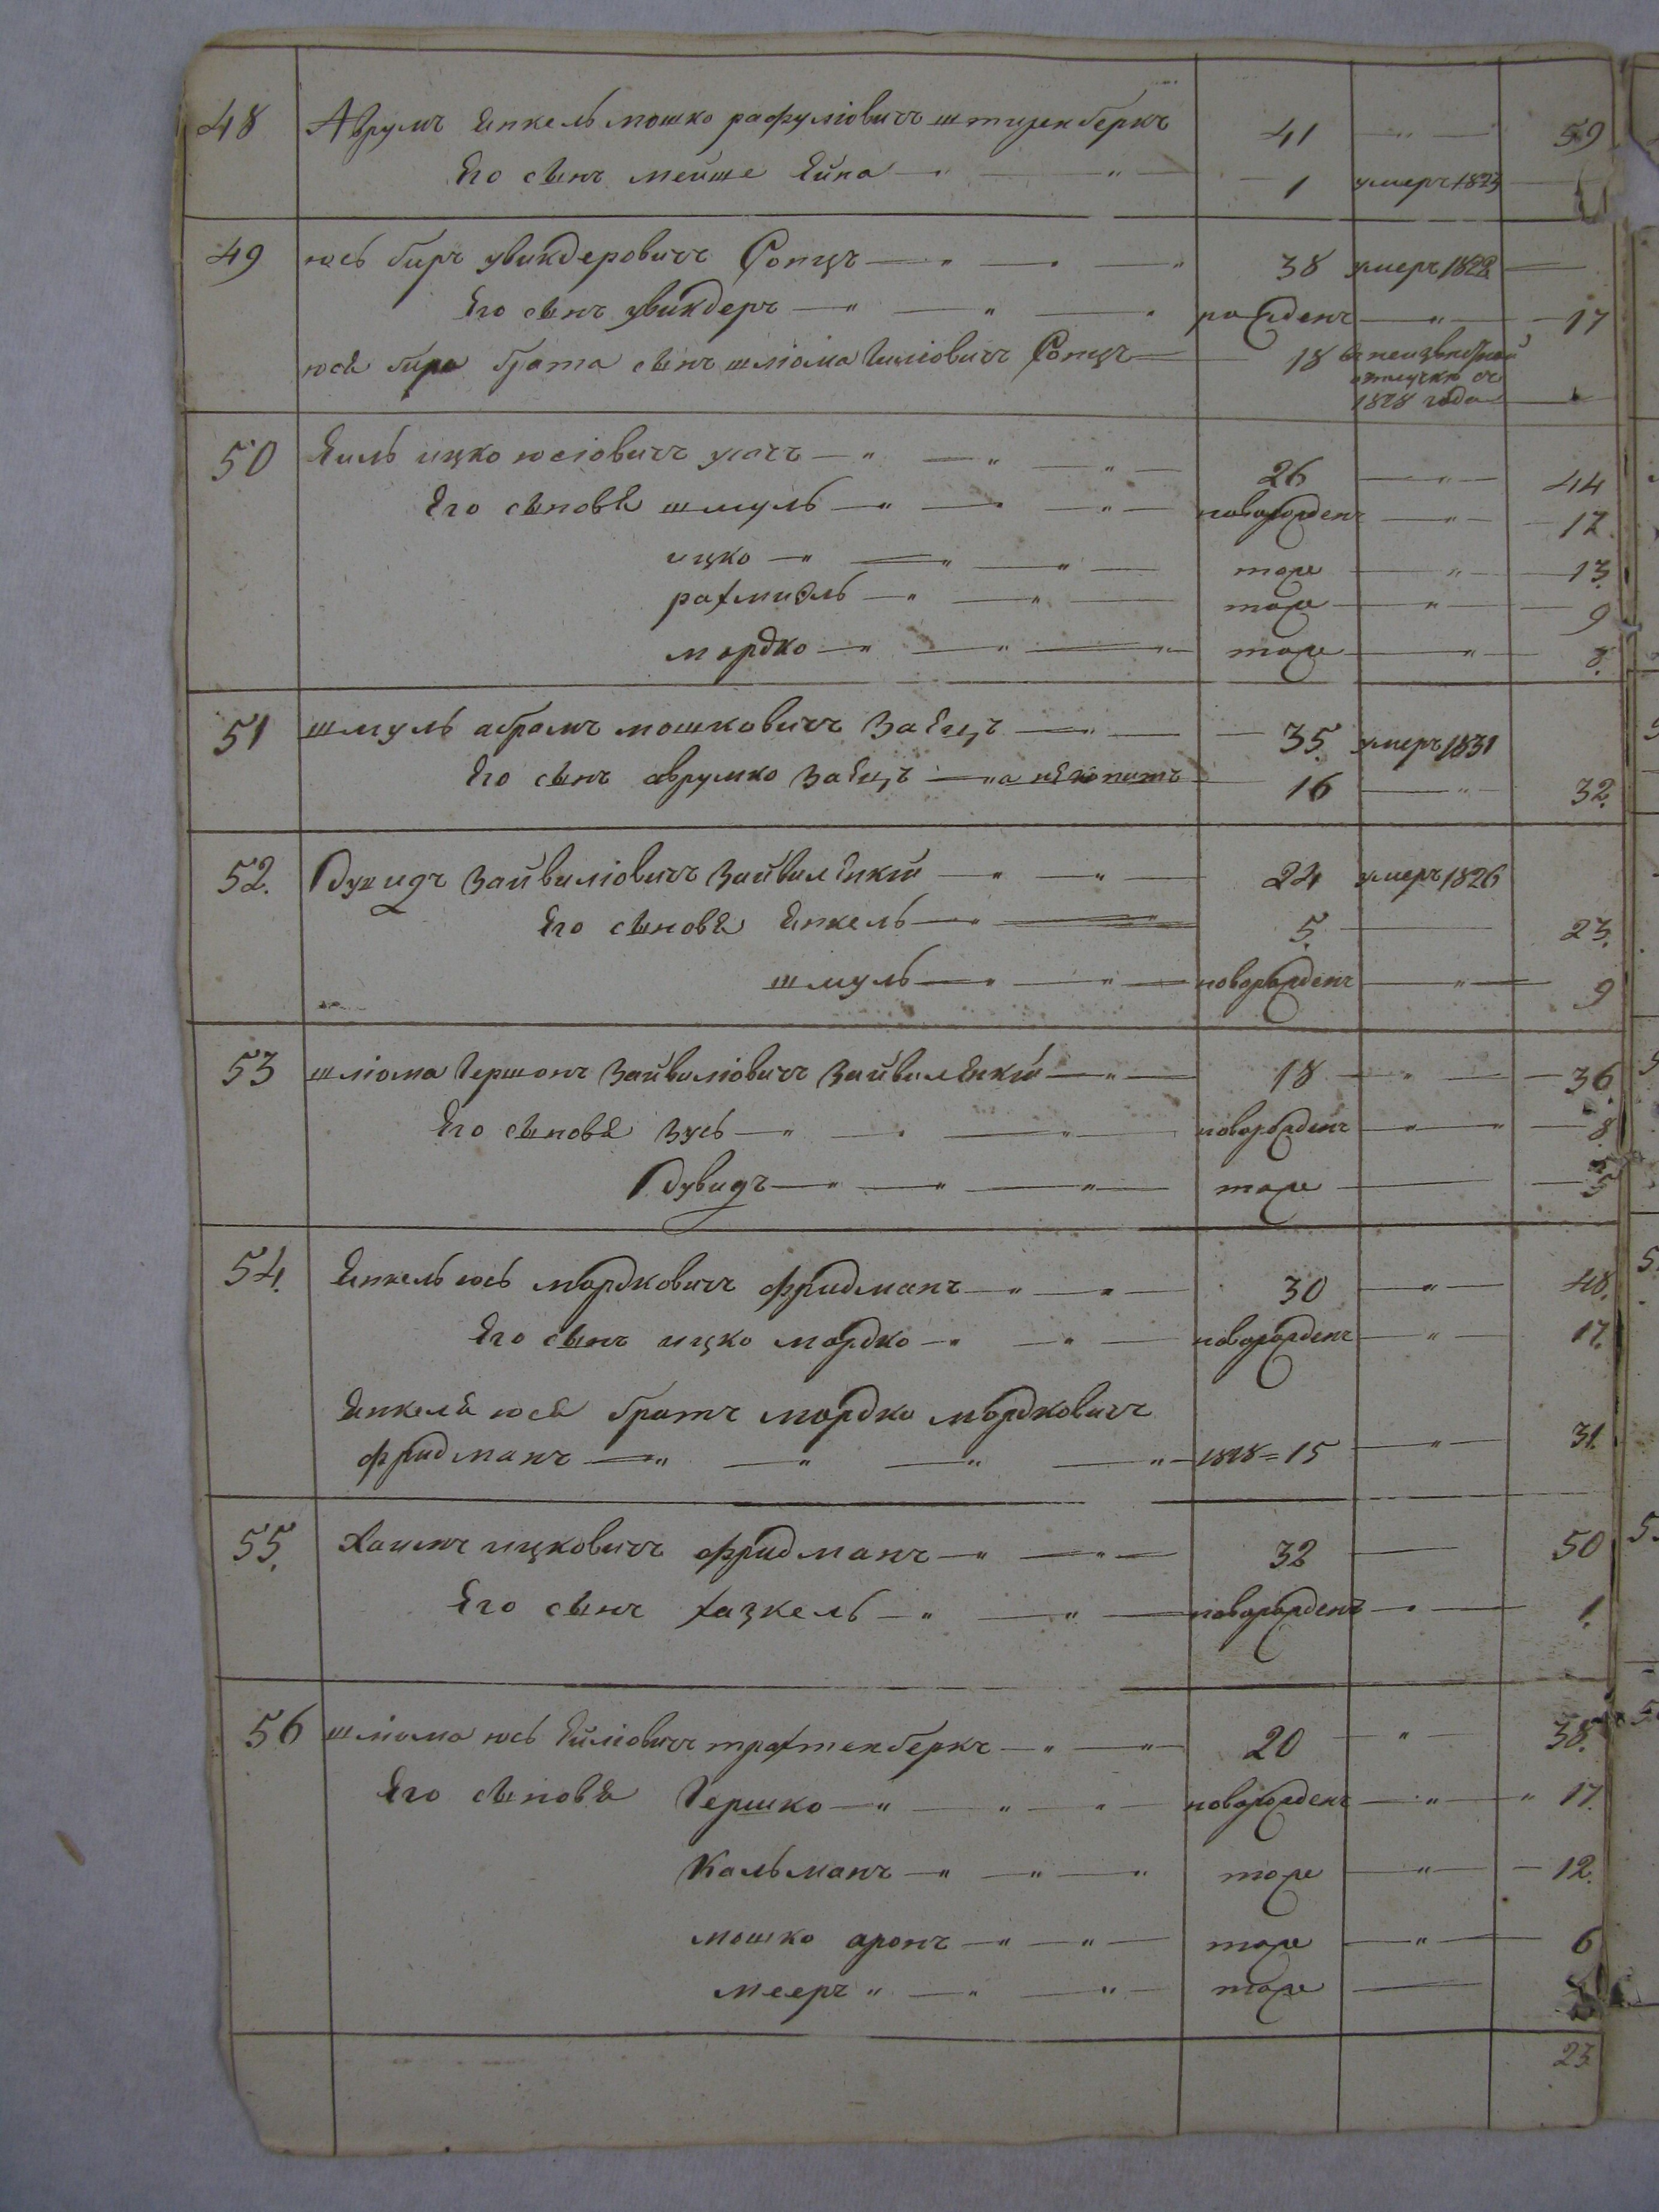 48 Аврумъ Янкель мошко рафуліовичъ штиренберкъ 41 — " — 59
Его сынъ мейше Ейна — " — " — 1 умеръ 1823 —
49 юсь биръ увикдеровичъ Сотцъ — " — " — " 38 умеръ 1828 —
Его сынъ увикдеръ — " — " — " рожденъ — " — 17
юся бира брата сынъ шліома Гиліовичъ Сотцъ — 18 въ неизвѣстной
отлучкѣ съ
1828 года —
50 Хиль ицко юсіовичъ — " — " — " — 26 — " — 44
Его сыновя шмуль — " — " — " — новорожденъ — " — 17.
ицко — " — " — " — тоже — " — 13.
рахмиэль — " — " — тоже — " — 9
мордко — " — " — " — тоже — " — 8.
51 шмуль абрамъ мошковичъ Заяцъ — " — 35. умеръ 1831
Его сынъ аврумко Заяцъ — " 16 — " — 32.
52. Дувидъ Зайвиліовичъ Зайвиленкій — " — " — 24 умеръ 1826
Его сыновя Янкель — " — " 5. — 23.
шмуль — " — " — новорожденъ — " — 9
53 шліома Гершонъ Зайвиліовичъ Зайвиленкій — " — 18 — " — 36.
Его сыновя Зусь — " — " — " — новорожденъ — " — " — 8
Дувидъ — " — " — " — тоже — 5
54. Янкель юсь мордковичъ фридманъ — " — " — 30 — " — 48.
Его сынъ ицко мордко — " — " — новорожденъ — " — 17.
Янкеля юся братъ мордко мордковичъ
фридманъ — " — " — " — " — 1818 = 15 — " — 31.
55. Хаимъ ицковичъ фридманъ — " — " — 32 — 50
Его сынъ хазкель — " — " — новорожденъ — " — 1.
56 шліома юсь Хиліовичъ трахтенберкъ — " — " 20 — " — 38.
Его сыновя Гершко — " — " — " — новорожденъ — " — " 17.
Кальманъ — " — " — " тоже — " — 12.
мошко аронъ — " — " — тоже — " — 6
мееръ " — " — " — тоже —
23